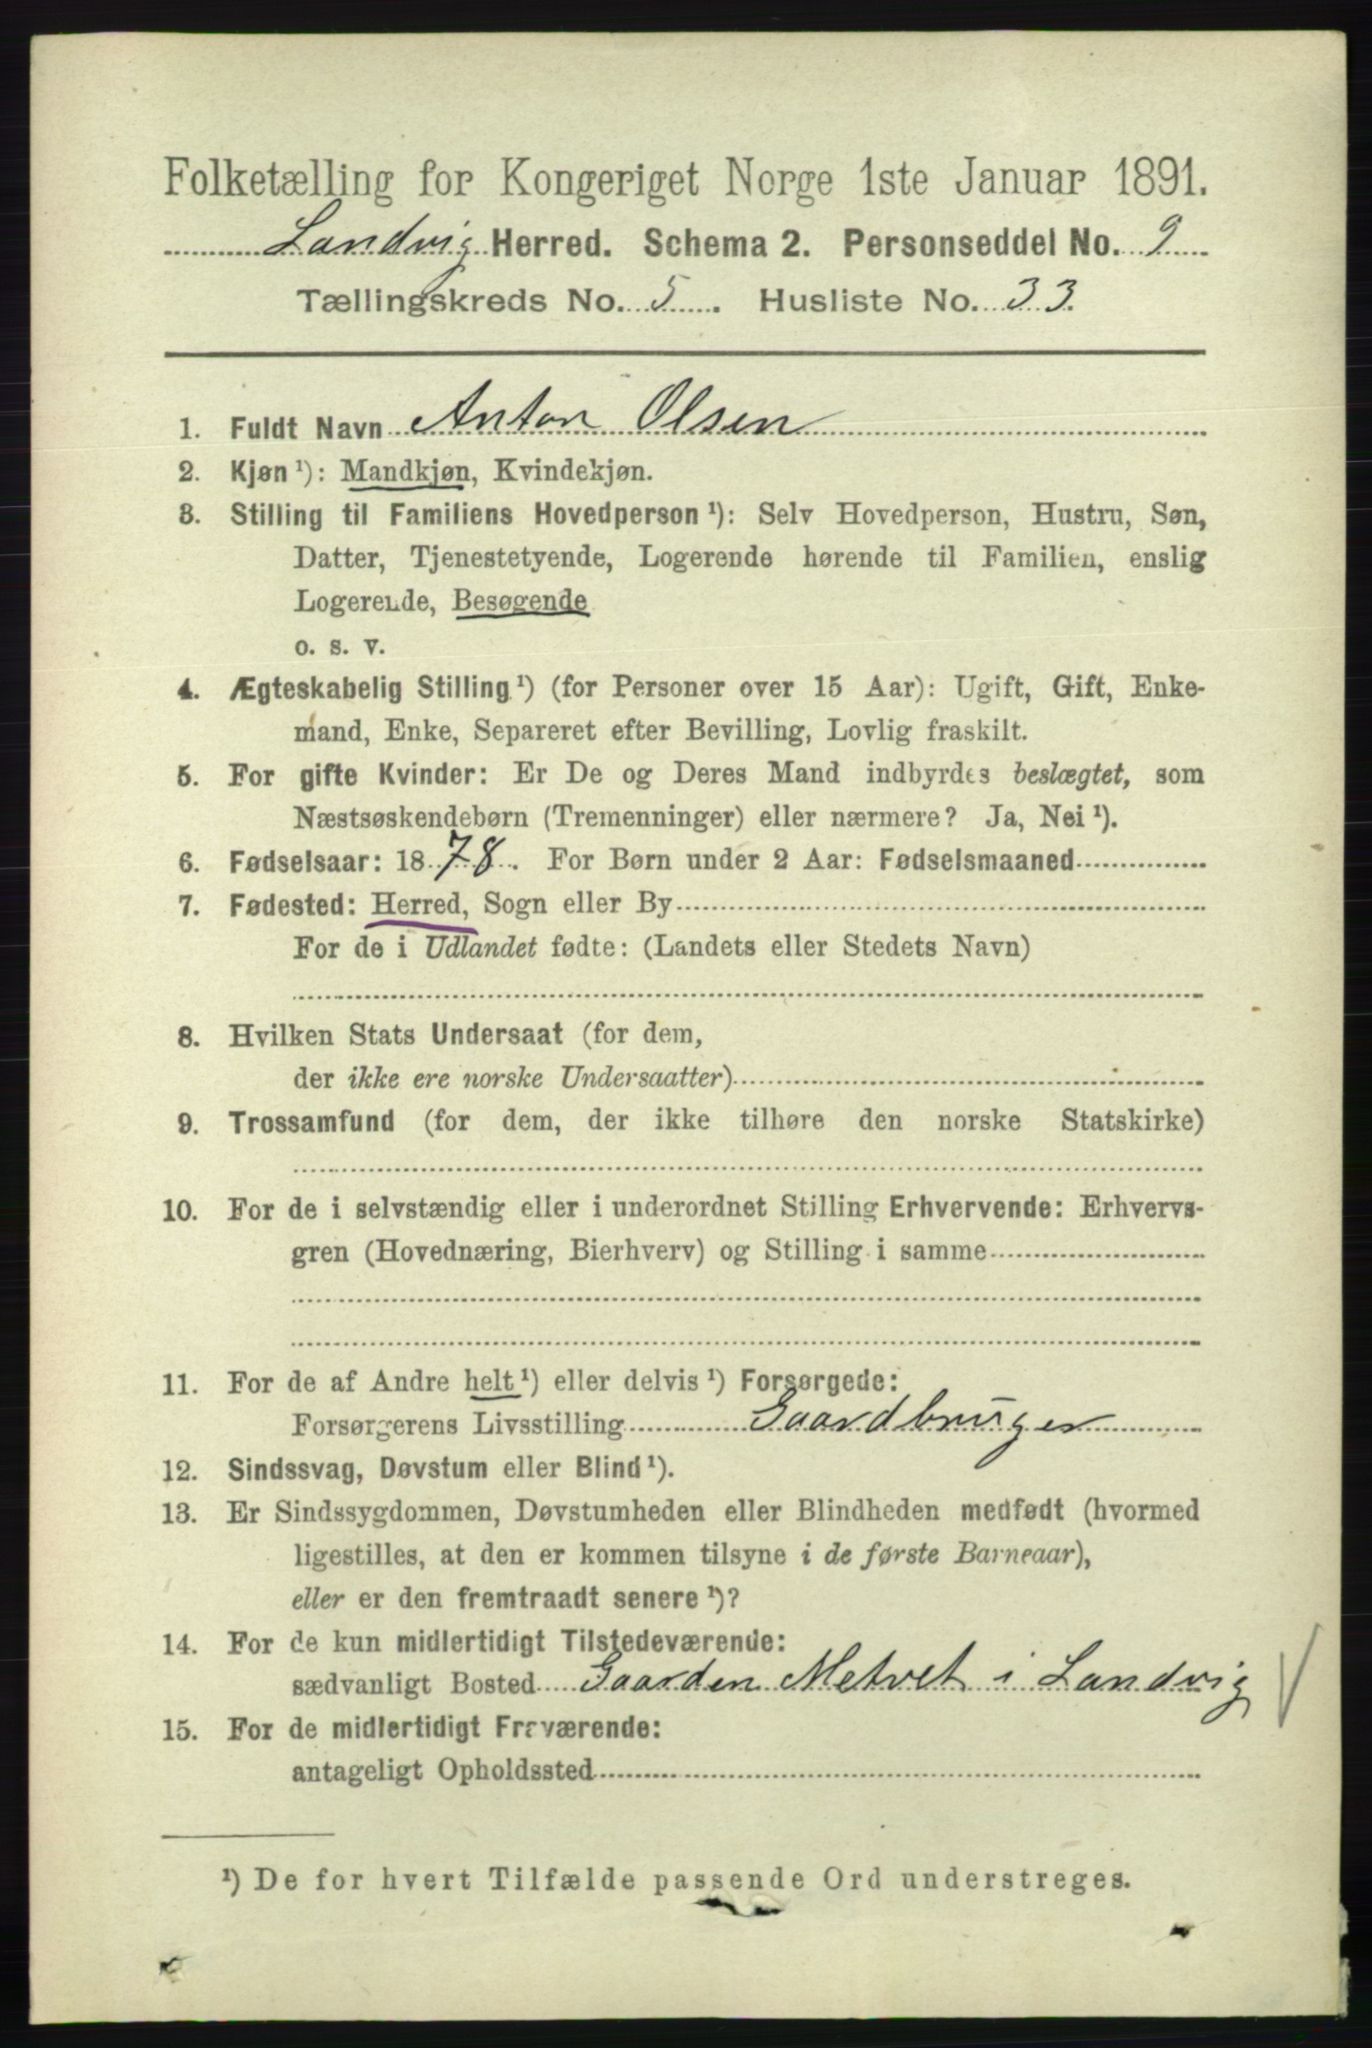 Folketælling for Kongeriget Norge 1ste Januar 1891.
Landvig Herred. Schema 2. Personseddel No. 9
Tællingskreds No. 5. Husliste No. 33.
1. Fuldt Navn Anton Olsen
2. Kjøn ¹): Mandkjøn, Kvindekjøn.
3. Stilling til Familiens Hovedperson ¹): Selv Hovedperson, Hustru, Søn,
Datter, Tjenestetyende, Logerende hørende til Familien, enslig
Logerende, Besøgende
o. s. v.
4. Ægteskabelig Stilling ¹) (for Personer over 15 Aar): Ugift, Gift, Enke-
mand, Enke, Separeret efter Bevilling, Lovlig fraskilt.
5. For gifte Kvinder: Er De og Deres Mand indbyrdes beslægtet, som
Næstsøskendebørn (Tremenninger) eller nærmere? Ja, Nei ¹).
6. Fødselsaar: 1878. For Børn under 2 Aar: Fødselsmaaned
7. Fødested: Herred, Sogn eller By
For de i Udlandet fødte: (Landets eller Stedets Navn)
8. Hvilken Stats Undersaat (for dem,
der ikke ere norske Undersaatter)
9. Trossamfund (for dem, der ikke tilhøre den norske Statskirke)
10. For de i selvstændig eller i underordnet Stilling Erhvervende: Erhvervs-
gren (Hovednæring, Bierhverv) og Stilling i samme
11. For de af Andre helt ¹) eller delvis ¹) Forsørgede:
Forsørgerens Livsstilling Gaardbruger
12. Sindssvag, Døvstum eller Blind ¹).
13. Er Sindssygdommen, Døvstumheden eller Blindheden medfødt (hvormed
ligestilles, at den er kommen tilsyne i de første Barneaar),
eller er den fremtraadt senere ¹)?
14. For de kun midlertidigt Tilstedeværende:
sædvanligt Bosted Gaarden Metvet i Landvig
15. For de midlertidigt Fraværende:
antageligt Opholdssted
¹) De for hvert Tilfælde passende Ord understreges.